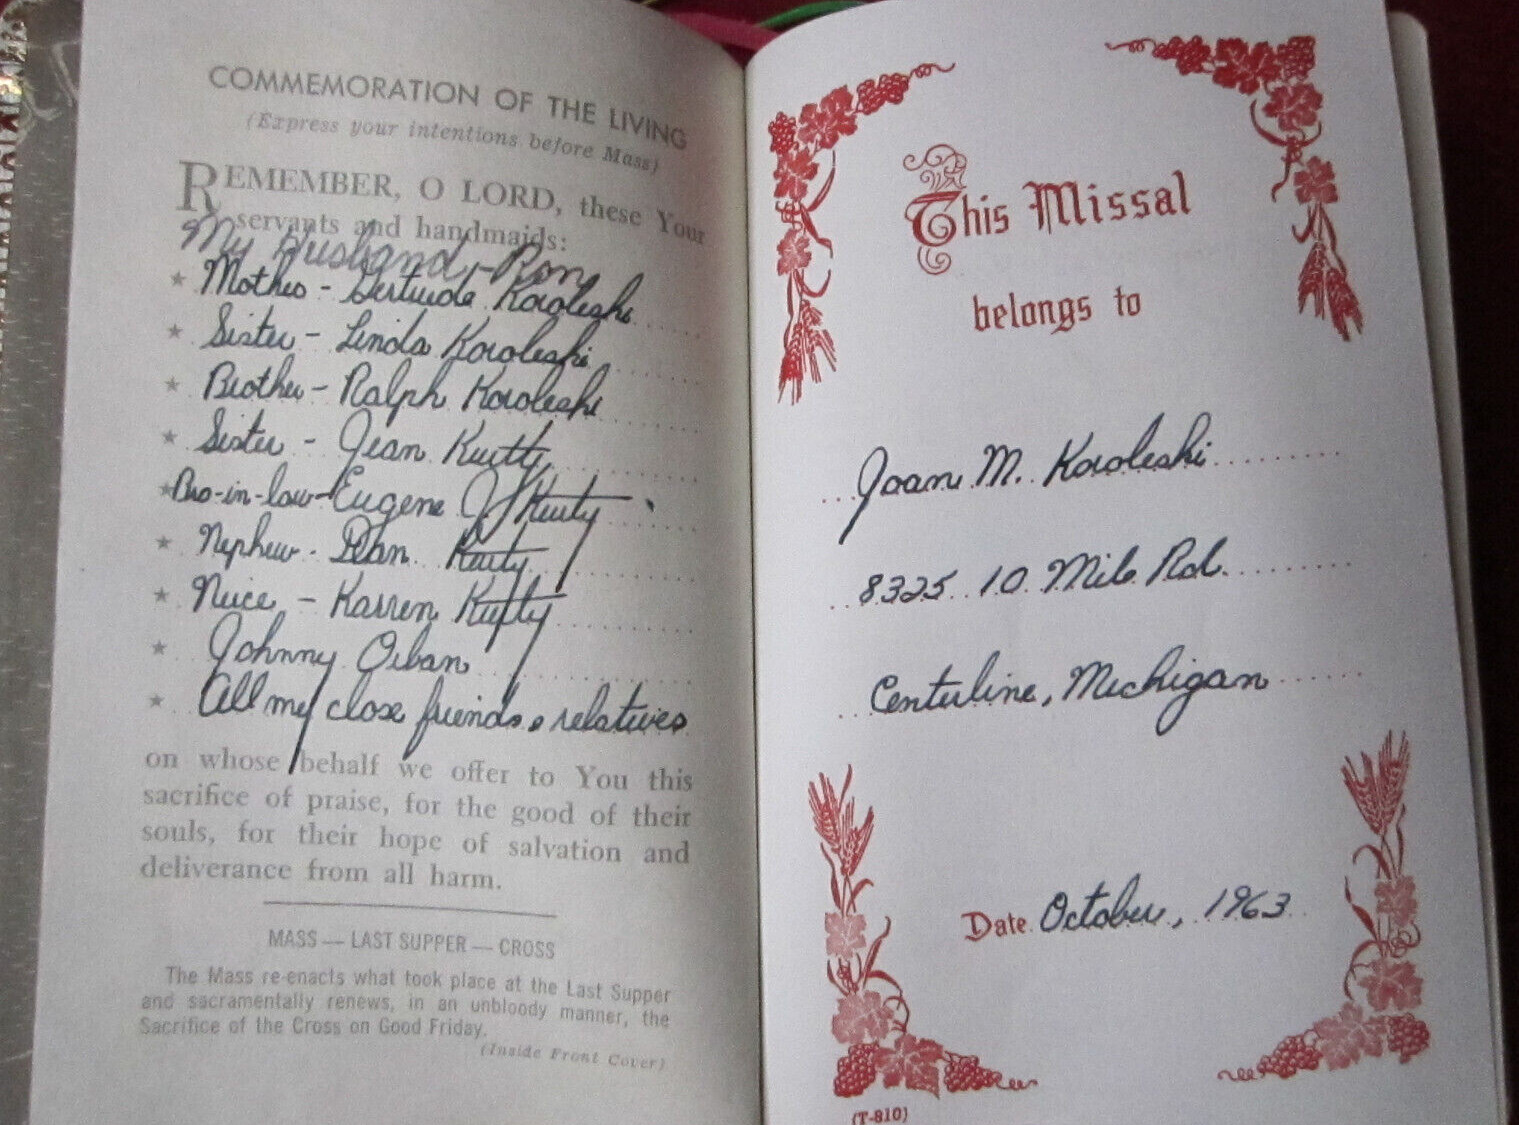 COMMEMORATION OF THE LIVING
(Express your intentions before Mass)
REMEMBER, O LORD, these Your
servants and handmaids:
My Husband - Ron
★ Mother - Gertrude Koroleski
★ Sister - Linda Koroleski
★ Brother - Ralph Koroleski
★ Sister - Jean
★ Bro-in-law - Eugene J.
★ Nephew - Dean
★ Niece - Karren
★ Johnny Orban
★ All my close friends & relatives
on whose behalf we offer to You this
sacrifice of praise, for the good of their
souls, for their hope of salvation and
deliverance from all harm.
MASS — LAST SUPPER — CROSS
The Mass re-enacts what took place at the Last Supper
and sacramentally renews, in an unbloody manner, the
Sacrifice of the Cross on Good Friday.
(Inside Front Cover)
This Missal
belongs to
Joan M. Koroleski
8325 10 Mile Rd.
Centerline, Michigan
Date October, 1963
(T-810)